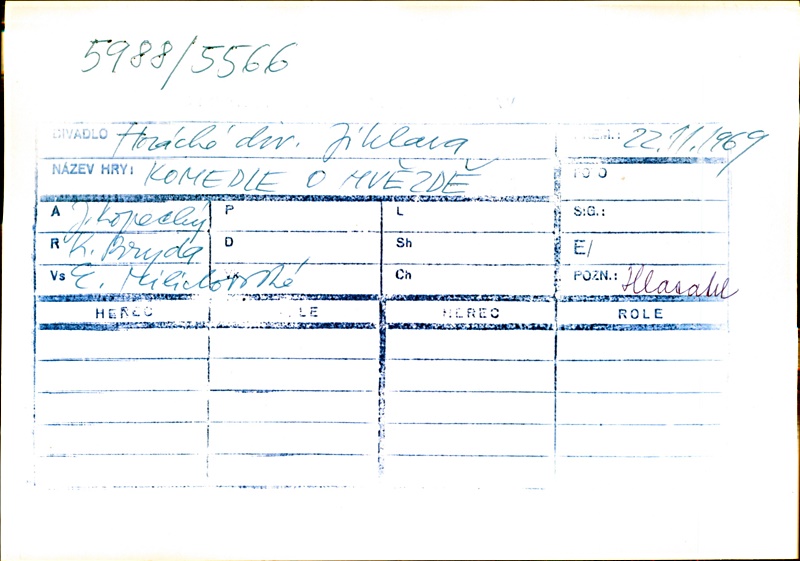 5988/5566
DIVADLO Horácké div. Jihlava PREM.: 22.11.1969
NÁZEV HRY: KOMEDIE O HVĚZDĚ FOTO
A J. Kopecký P L SIG.:
R K. Bryda D Sh E/
Vs E. Milichovská Ch POZN.: Hlasatel
HEREC ROLE HEREC ROLE